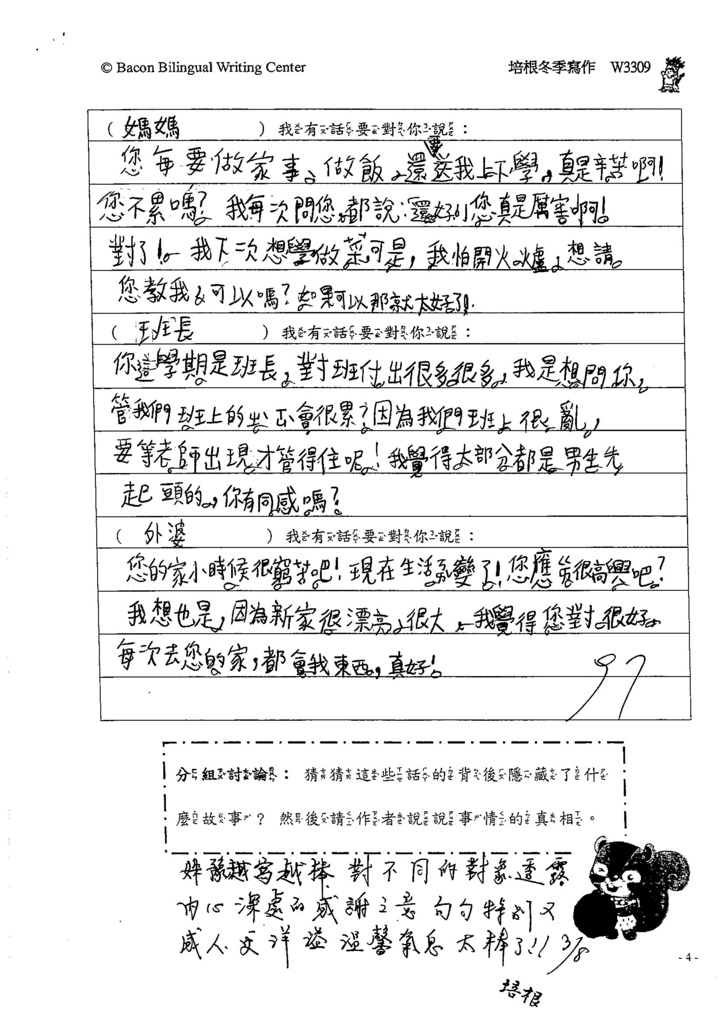 © Bacon Bilingual Writing Center 培根冬季寫作 W3309
( 媽媽 ) 我有話要對你說:
您每要做家事、做飯、還要送我上下學,真是辛苦啊!
您不累嗎?我每次問您,都說:還好!您真是厲害啊!
對了!我下一次想學做菜,可是,我怕開火爐,想請
您教我,可以嗎?如果可以那就太好了!
( 班長 ) 我有話要對你說:
你這學期是班長,對班付出很多很多,我是想問你,
管我們班上的 會很累?因為我們班上很亂,
要等老師出現才管得住呢!我覺得大部分都是男生先
起頭的,你有同感嗎?
( 外婆 ) 我有話要對你說:
您的家小時候很窮苦吧!現在生活 變了!您應當很高興吧?
我想也是,因為新家很漂亮、很大,我覺得您對 很好。
每次去您的家,都會 我東西,真好!
97
分組討論:猜猜這些話的背後隱藏了什
麼故事?然後請作者說說事情的真相。
越寫越棒 對不同的對象透露
內心深處的感謝之意 句句特別又
感人 文 洋溢溫馨氣息 太棒了!! 3/8
培根
- 4 -